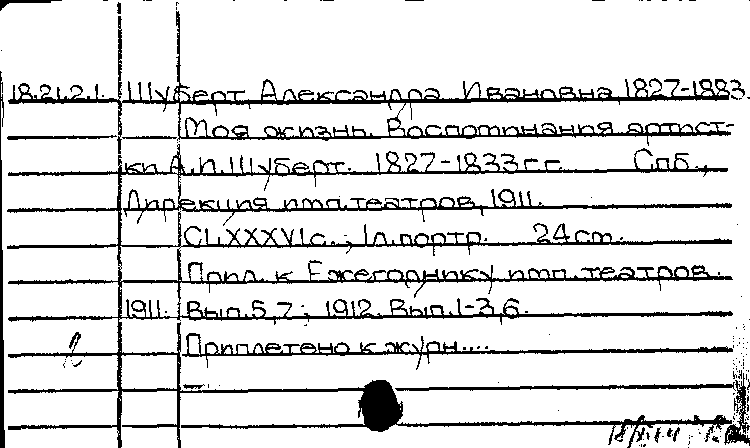 18.21.2.1. Шуберт, Александра Ивановна, 1827-1883.
Моя жизнь. Воспоминания артист-
ки А.И.Шуберт. 1827-1833г.г. Спб.,
Дирекция имп.театров, 1911.
CLXXXVIс.; 1л.портр. 24см.
Прил. к Ежегоднику имп. театров.
1911. Вып.5,7; 1912. Вып.1-3,6.
Приплетено к журн....